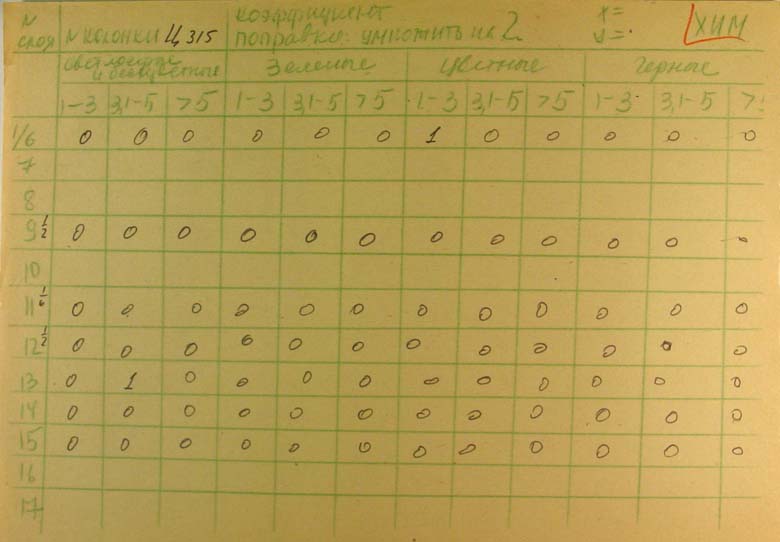 N слоя N колонки Ц 315 коэффициент поправки: умножить на 2 x= y= ХИМ
светлоокр. и бесцветные Зеленые Цветные Черные
1-3 3,1-5 >5 1-3 3,1-5 >5 1-3 3,1-5 >5 1-3 3,1-5 >5
1/6 0 0 0 0 0 0 1 0 0 0 0 0
7
8
9 1/2 0 0 0 0 0 0 0 0 0 0 0 0
10
11 1/6 0 0 0 0 0 0 0 0 0 0 0 0
12 1/2 0 0 0 0 0 0 0 0 0 0 0 0
13 0 1 0 0 0 0 0 0 0 0 0 0
14 0 0 0 0 0 0 0 0 0 0 0 0
15 0 0 0 0 0 0 0 0 0 0 0 0
16
17